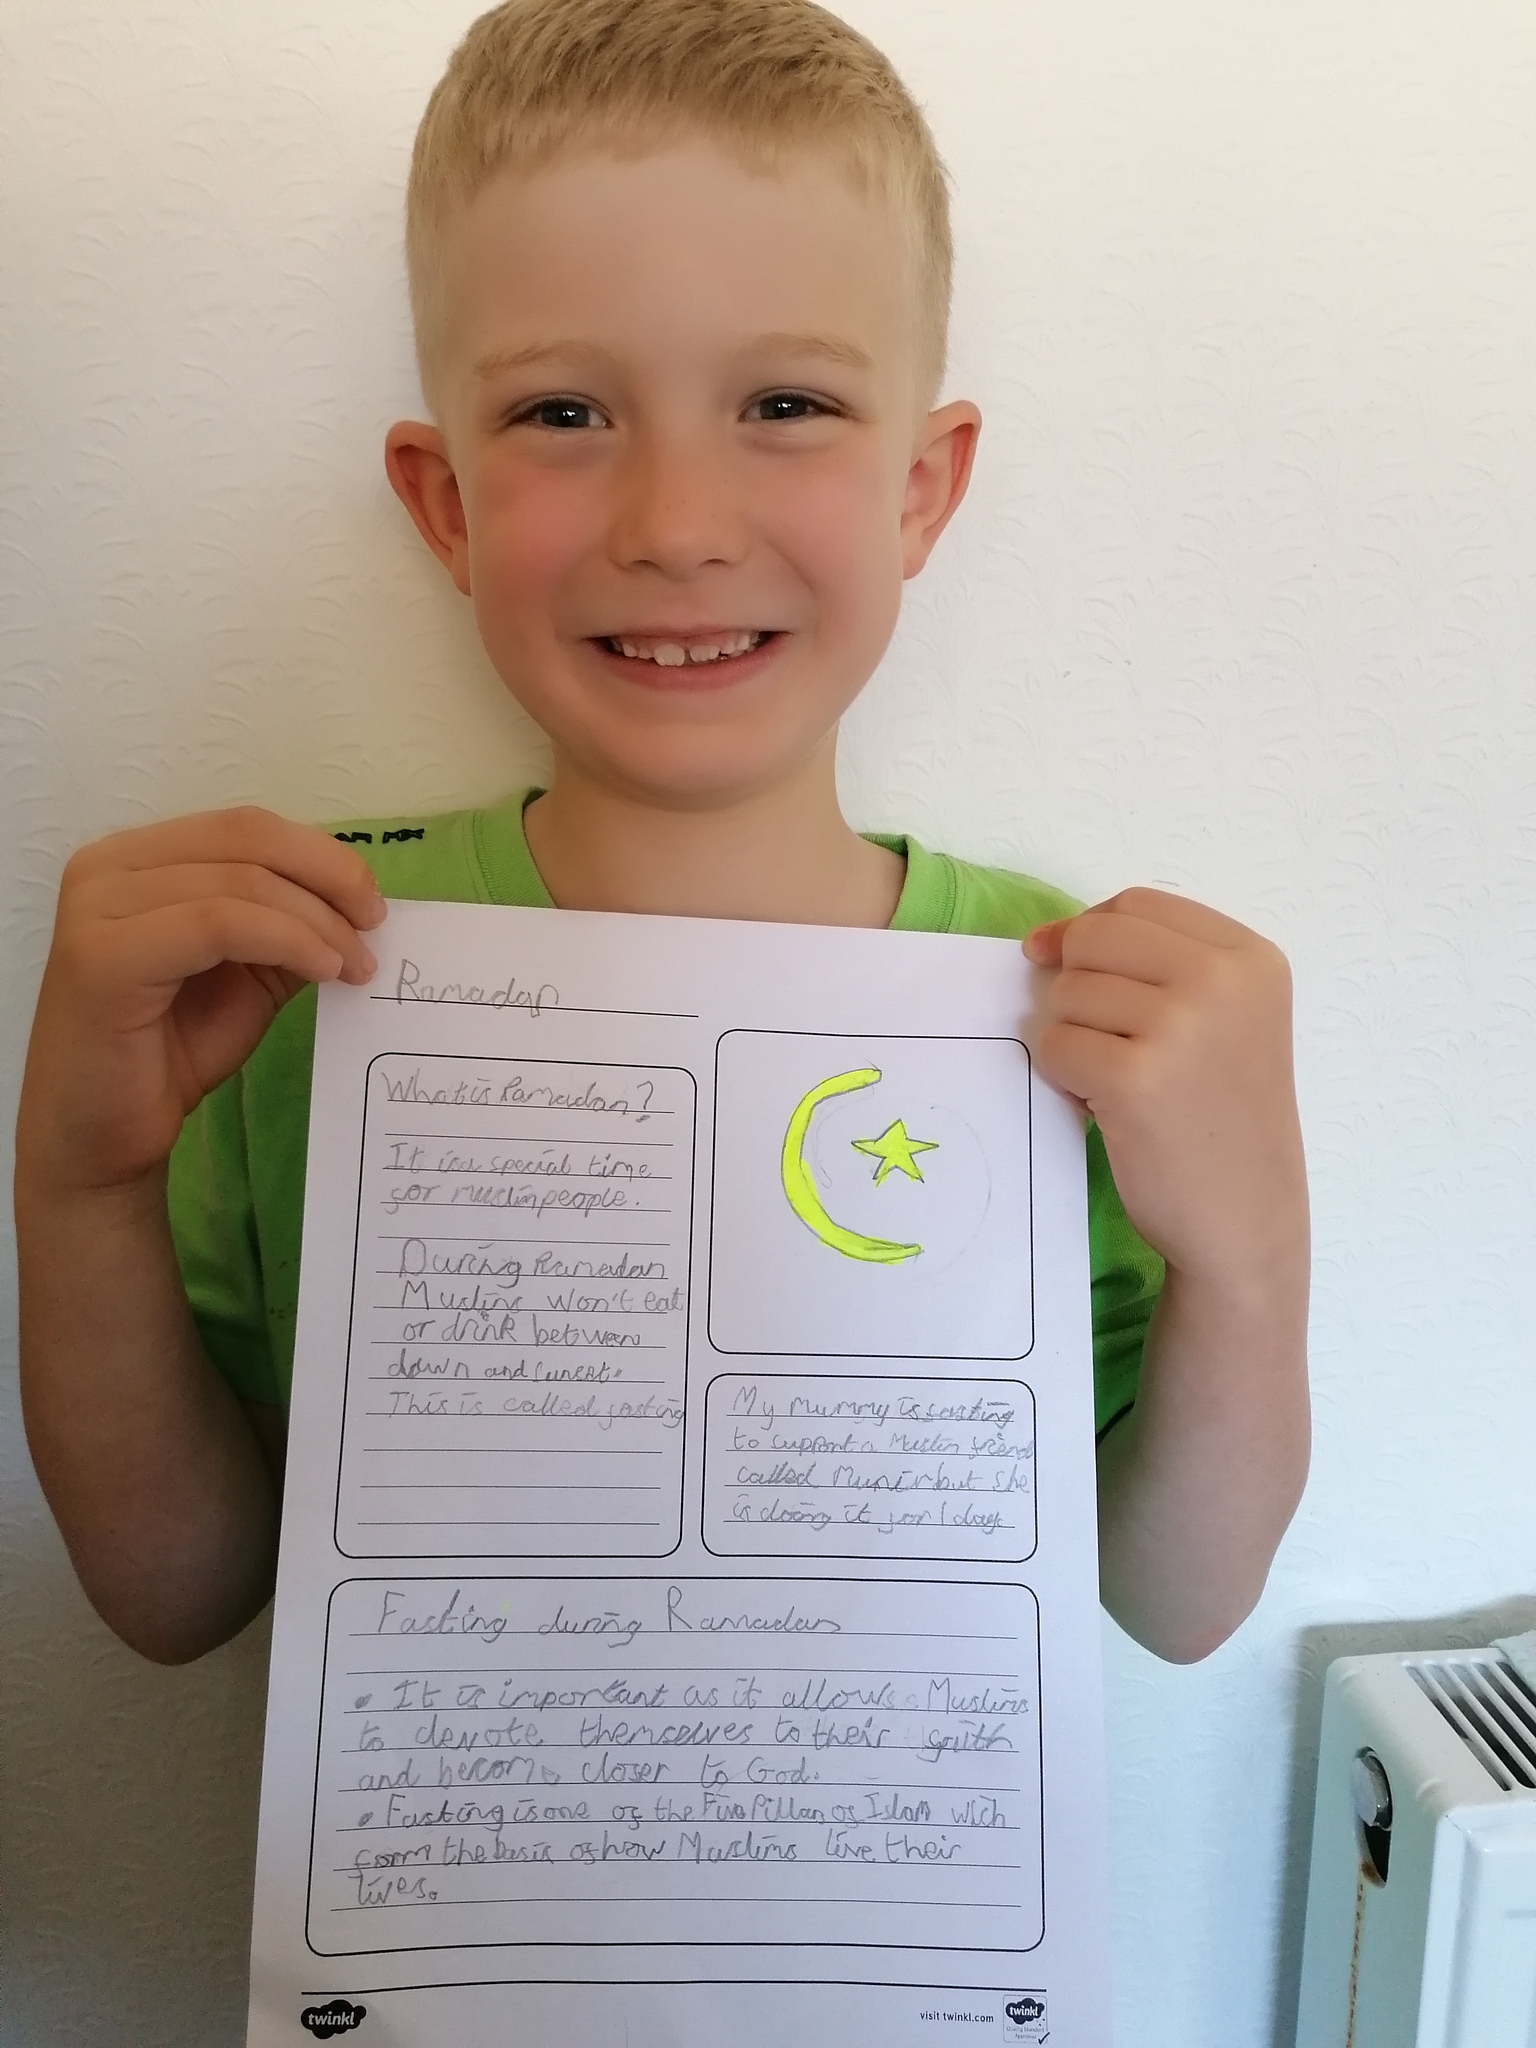 Ramadan
What is Ramadan?
It is a special time
for muslim people.
During Ramadan
Muslims won't eat
or drink between
dawn and sunset.
This is called fasting
My mummy is fasting
to support a Muslim friend
called Munir but she
is doing it for 1 day
Fasting during Ramadan
• It is important as it allows Muslims
to devote themselves to their faith
and become closer to God.
• Fasting is one of the Five Pillars of Islam wich
form the basis of how Muslims live their
lives.
twinkl
visit twinkl.com
twinkl
Quality Standard
Approved